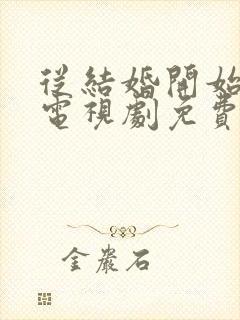 從結婚開始
電視劇免費
金巖石